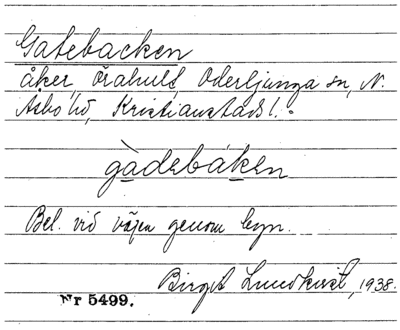 Gatebacken
åker, Örahult, Oderljunga sn, N.
Asbo hd, Kristianstads l.
gàdebáken
Bel. vid vägen genom byn.
Birgit Lundkvist, 1938.
Nr 5499.